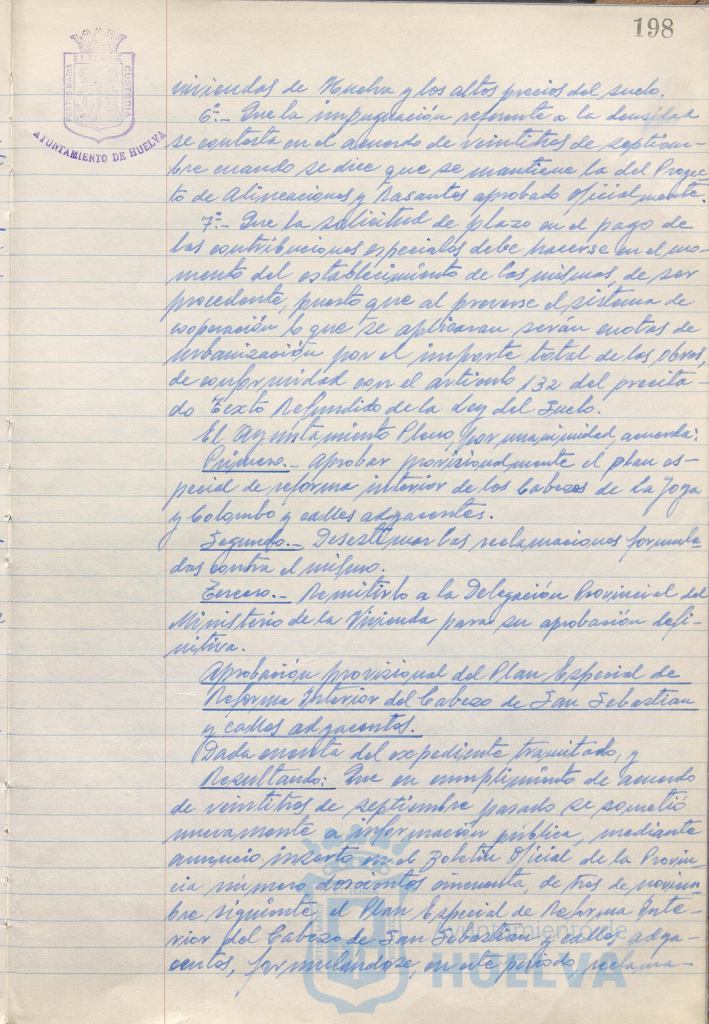 198
PORTUS MARIS ET TERRAE CUSTODIA
AYUNTAMIENTO DE HUELVA
viviendas de Huelva y los altos precios del suelo.
6º.- Que la impugnación referente a la densidad
se contesta en el acuerdo de veintitros de septiem-
bre cuando se dice que se mantiene la del Proyec-
to de Alineaciones y Rasantes aprobado oficialmente.
7º.- Que la solicitud de plazo en el pago de
las contribuciones especiales debe hacerse en el mo-
mento del establecimiento de las mismas, de ser
procedente, puesto que al preverse el sistema de
cooperación lo que se aplicaran serán cuotas de
urbanización por el importe total de las obras,
de conformidad con el artículo 132 del precita-
do Texto Refundido de la Ley del Suelo.
El Ayuntamiento Pleno, por unanimidad, acuerda:
Primero.- Aprobar provisionalmente el plan es-
pecial de reforma interior de los Cabezos de La Joya
y Colombo y calles adyacentes.
Segundo.- Desestimar las reclamaciones formula-
das contra el mismo.
Tercero.- Remitirlo a la Delegación Provincial del
Ministerio de la Vivienda para su aprobación defi-
nitiva.
Aprobación provisional del Plan Especial de
Reforma Interior del Cabezo de San Sebastian
y calles adyacentes.
Dada cuenta del expediente tramitado, y
Resultando: Que en cumplimiento de acuerdo
de veintitros de septiembre pasado se sometió
nuevamente a información pública, mediante
anuncio inserto en el Boletín Oficial de la Provin-
cia número doscientos cincuenta, de tres de noviem-
bre siguiente, el Plan Especial de Reforma Inte-
rior del Cabezo de San Sebastian y calles adya-
centes, formulándose, en este período, reclama-
Ayuntamiento de
HUELVA